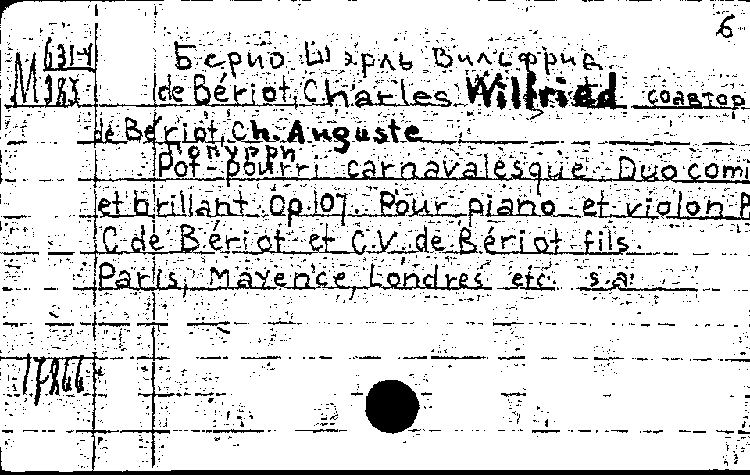 6
М 631-4
383
Берио Шарль Вильфрид
de Bériot, Charles Wilfried соавтор
de Bériot, Ch. Auguste
Попурри
Pot-pourri carnavalesque. Duo comi
et brillant. Op. 107. Pour piano et violon P
C. de Bériot et C.V. de Bériot fils.
Paris, Mayence, Londres etc. s.a.
17866